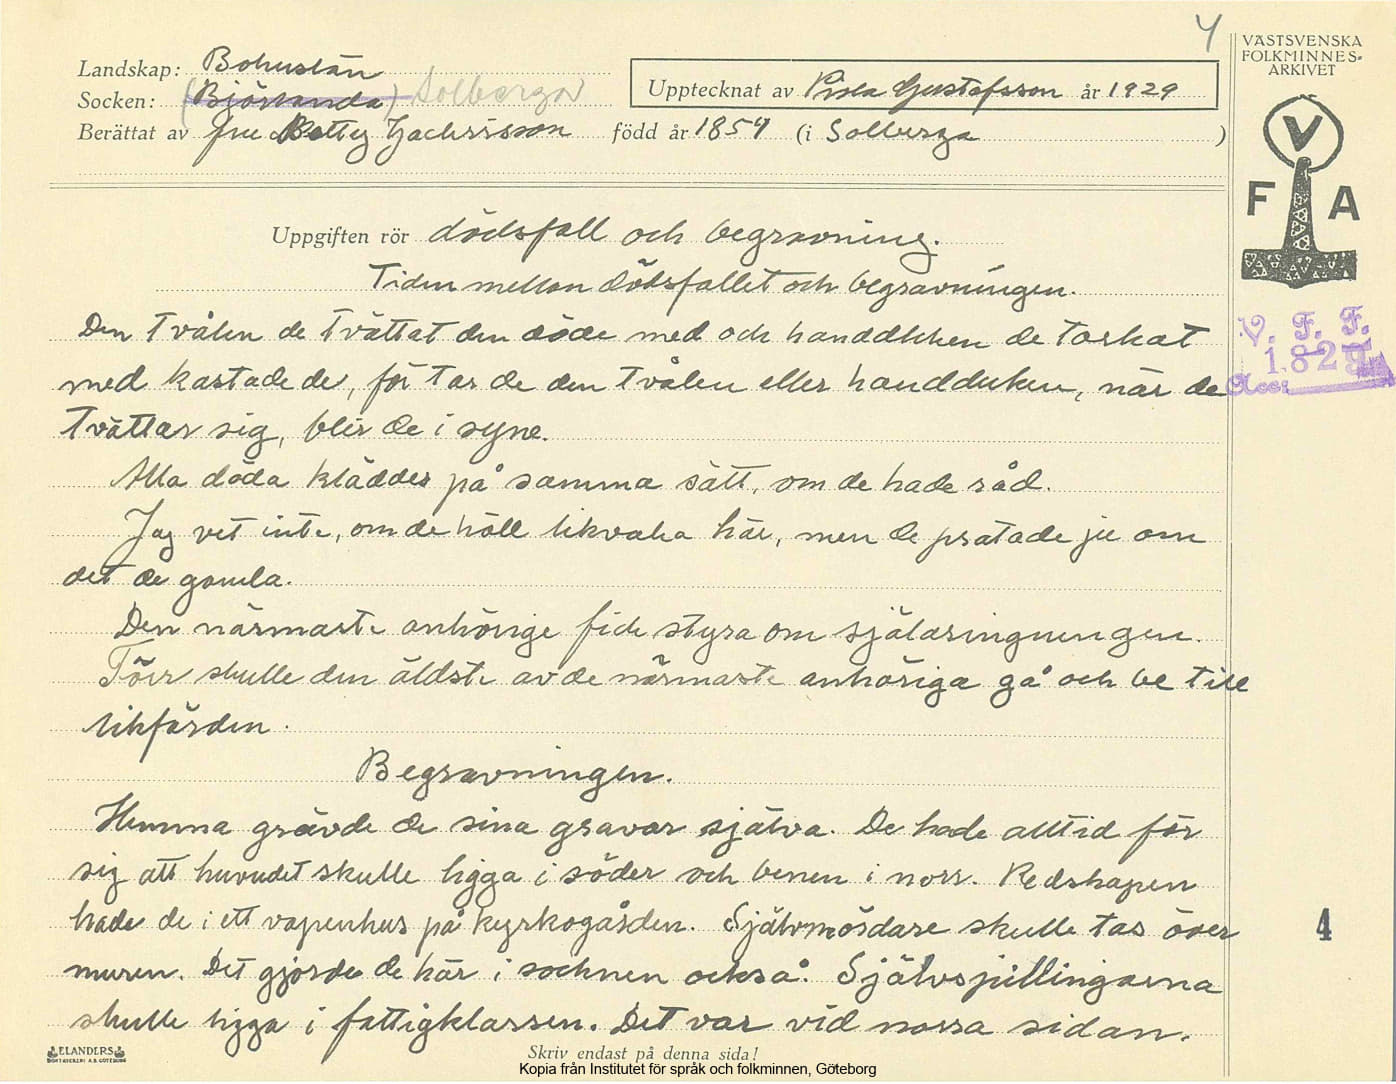 4
Landskap: Bohuslän
VÄSTSVENSKA
FOLKMINNES-
ARKIVET
Socken: (Björlanda) Solberga
Upptecknat av Gustafsson år 1929
Berättat av fru Betty Zachrisson född år 1854 (i Solberga )
V
F A
Uppgiften rör dödsfall och begravning.
Tiden mellan dödsfallet och begravningen.
Den tvålen de tvättat den döde med och handduken de torkat
V. F. F.
1829
Acc:
med kastade de, för tar de den tvålen eller handduken, när de
tvättar sig, blir de i syne.
Alla döda kläddes på samma sätt, om de hade råd.
Jag vet inte, om de höll likvaka här, men de pratade ju om
det de gamla.
Den närmaste anhörige fick styra om själaringningen.
Förr skulle den äldste av de närmaste anhöriga gå och be till
likfärden.
Begravningen.
Hemma grävde de sina gravar själva. De hade alltid för
sig att huvudet skulle ligga i söder och benen i norr. Redskapen
hade de i ett vapenhus på kyrkogården. Självmördare skulle tas över
4
muren. Det gjorde de här i socknen också. Självspillingarna
skulle ligga i fattigklassen. Det var vid norra sidan.
ELANDERS
BOKTRYCKERI A.B. GÖTEBORG
Skriv endast på denna sida!
Kopia från Institutet för språk och folkminnen, Göteborg